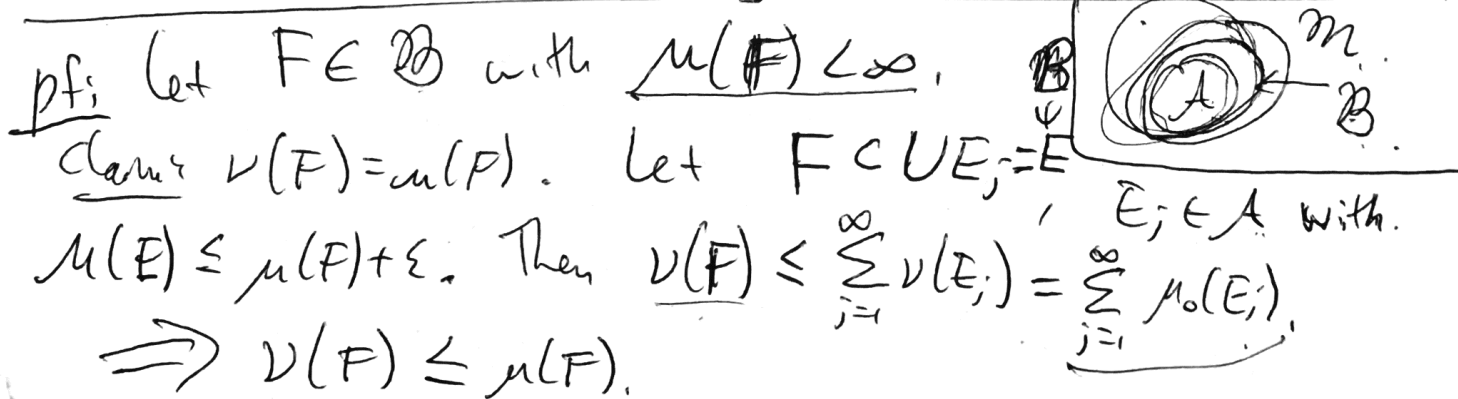 pf: Let F ∈ 𝓑 with μ(F) < ∞.
Claim: ν(F) = μ(F). Let F ⊂ ∪E_j =: E ∈ 𝓑, E_j ∈ A with.
μ(E) ≤ μ(F) + ε. Then ν(F) ≤ ∑_{j=1}^{∞} ν(E_j) = ∑_{j=1}^{∞} μ₀(E_j).
⟹ ν(F) ≤ μ(F).
A
m
𝓑